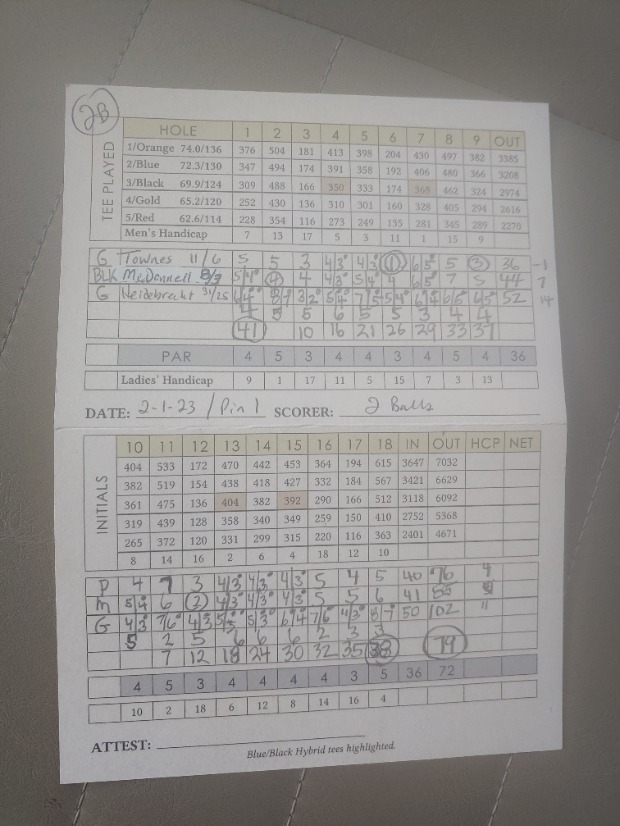 2B
HOLE 1 2 3 4 5 6 7 8 9 OUT
TEE PLAYED
1/Orange 74.0/136 376 504 181 413 398 204 430 497 382 3385
2/Blue 72.3/130 347 494 174 391 358 192 406 480 366 3208
3/Black 69.9/124 309 488 166 350 333 174 368 462 324 2974
4/Gold 65.2/120 252 430 136 310 301 160 328 405 294 2616
5/Red 62.6/114 228 354 116 273 249 135 281 345 289 2270
Men's Handicap 7 13 17 5 3 11 1 15 9
G Townes 11/6 5 5 3 4/3 4/3 1 6/5 5 3 36 -1
BLK McDonnell 5/4 4 4 4/3 5/4 4 6/5 7 5 44 7
G Heidebrecht 6/4 8/7 3/2 5/4 7/5 5/4 6/5 52 14
4 5 5 6 5 5 3 4 4
41 10 16 21 26 29 33 37
PAR 4 5 3 4 4 3 4 5 4 36
Ladies' Handicap 9 1 17 11 5 15 7 3 13
DATE: 2-1-23 / Pin 1 SCORER: 2 Balls
INITIALS
10 11 12 13 14 15 16 17 18 IN OUT HCP NET
404 533 172 470 442 453 364 194 615 3647 7032
382 519 154 438 418 427 332 184 567 3421 6629
361 475 136 404 382 392 290 166 512 3118 6092
319 439 128 358 340 349 259 150 410 2752 5368
265 372 120 331 299 315 220 116 363 2401 4671
8 14 16 2 6 4 18 12 10
4 7 3 4/3 4/3 4/3 5 4 5 40 76 4
M 5/4 6 2 4/3 4/3 4/3 5 5 6 41 85
G 4/3 7/6 4/3 5/3 6/4 7/6 4/3 8/7 50 102 11
5 2 5 6 6 6 2 3 3
7 12 18 24 30 32 35 38 79
4 5 3 4 4 4 4 3 5 36 72
10 2 18 6 12 8 14 16 4
ATTEST:
Blue/Black Hybrid tees highlighted.